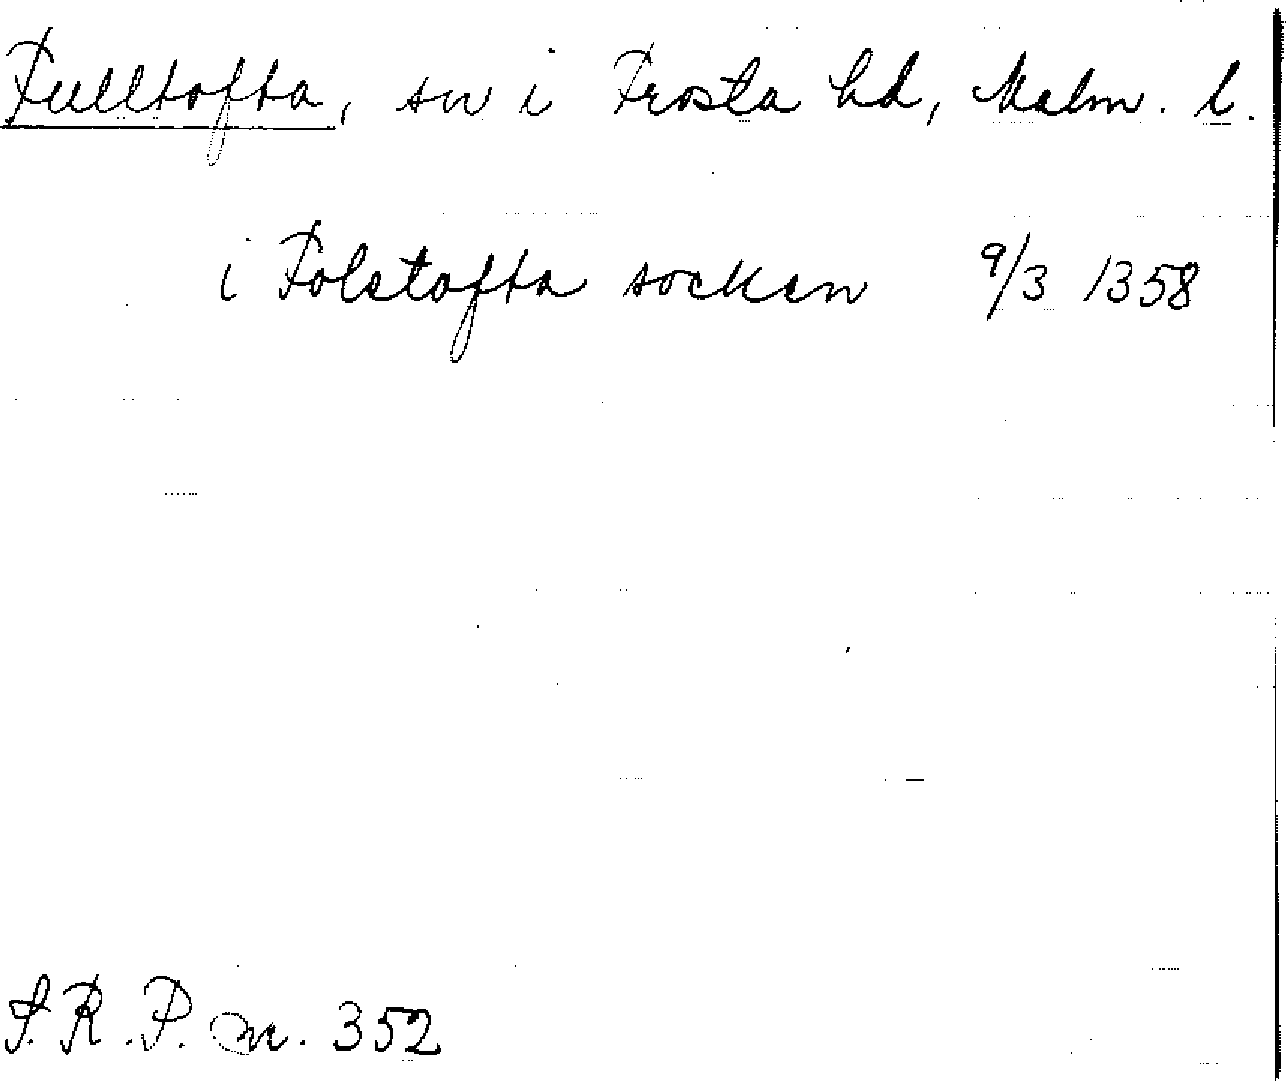 Fulltofta, sn i Frosta hd, Malm. l.
i Folstofta sockan 9/3 1358
S.R.P. nr. 352